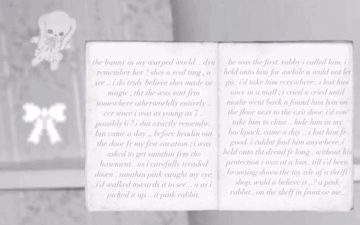 the bunny in my warped world .. dyu
remember her ? shes a real ting , u
see .. i do truly believe shes made uv
magic ; tht she was sent frm
somewhere otherworldly entirely ..
evr since i was as young as 7 ..
possibly 6 ? i dnt exactly remembr.
but came a day ,, before headin out
the door fr my frst vacation ; i was
asked to get sumthin frm the
basement.. as i carefully treaded
down , sumthin pink caught my eye.
i'd walked towards it to see .. n as i
picked it up .. a pink rabbit.
he was the first. rabby i called him. i
held onto him for awhile n wuld not let
go.. i'd take him everywhere.. i lost him
once in a mall , i cried n cried until
mothr went back n found him lyin on
the floor next to the exit door. i'd evn
take him to class .. hide him in my
backpack. came a day .. i lost him fr
good. i culdnt find him anywhere. i
held onto tht dread fr long.. without his
protection i was at a loss.. till i'd been
browsing down the toy aile of a thrift
shop, wuld u believe it ..? a pink
rabbit.. on the shelf in front ov me.